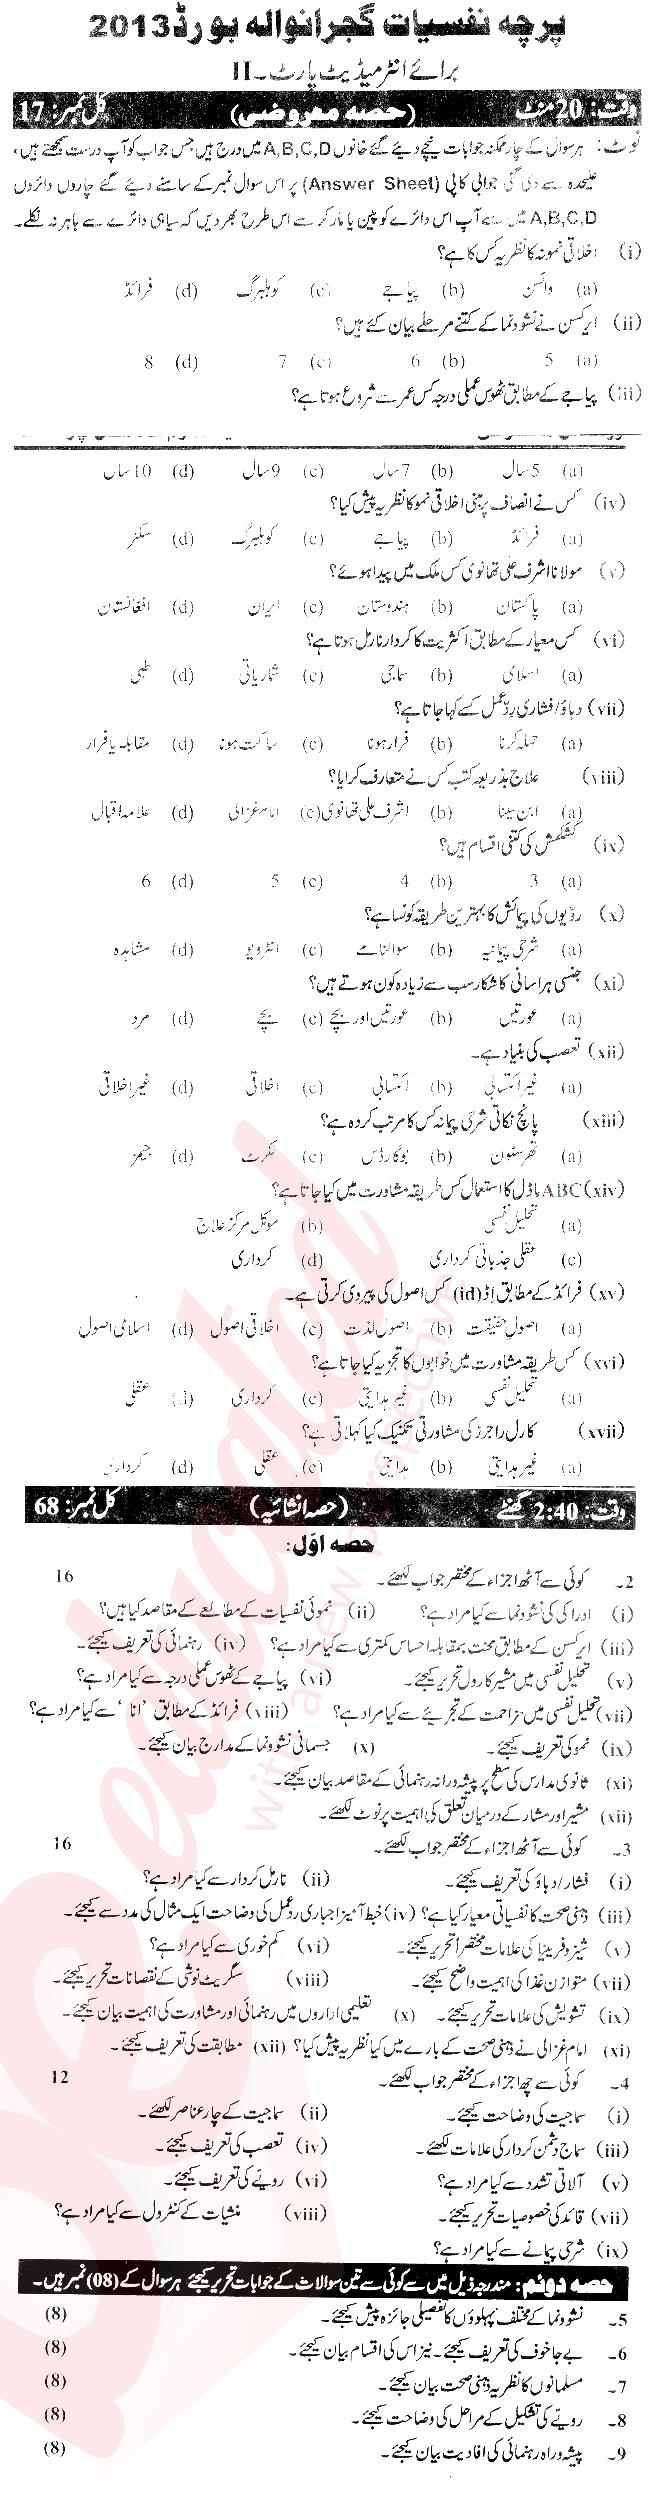 پرچہ نفسیات گجرانوالہ بورڈ 2013
برائے انٹرمیڈیٹ پارٹ ۔ II
وقت: 20 منٹ (حصہ معروضی) کل نمبر: 17
نوٹ: ہر سوال کے چار ممکنہ جوابات نیچے دیئے گئے خانوں A,B,C,D میں درج ہیں جس جواب کو آپ درست سمجھتے ہیں،
علیحدہ سے دی گئی جوابی کاپی (Answer Sheet) پر اس سوال نمبر کے سامنے دیئے گئے چاروں دائروں
A,B,C,D میں سے آپ اس دائرے کو پین یا مارکر سے اس طرح بھر دیں کہ سیاہی دائرے سے باہر نہ نکلے۔
(i) اخلاقی نمونہ کا نظریہ کس کا ہے؟
(a) واٹسن (b) پیاجے (c) کوہلبرگ (d) فرائڈ
(ii) ایرکسن نے نشوونما کے کتنے مرحلے بیان کئے ہیں؟
(a) 5 (b) 6 (c) 7 (d) 8
(iii) پیاجے کے مطابق ٹھوس عملی درجہ کس عمر سے شروع ہوتا ہے؟
(a) 5 سال (b) 7 سال (c) 9 سال (d) 10 سال
(iv) کس نے انصاف پر مبنی اخلاقی نمو کا نظریہ پیش کیا؟
(a) فرائڈ (b) پیاجے (c) کوہلبرگ (d) سکنر
(v) مولانا اشرف علی تھانوی کس ملک میں پیدا ہوئے؟
(a) پاکستان (b) ہندوستان (c) ایران (d) افغانستان
(vi) کس معیار کے مطابق اکثریت کا کردار نارمل ہوتا ہے؟
(a) اسلامی (b) سماجی (c) شماریاتی (d) طبی
(vii) دباؤ/فشاری ردعمل کسے کہا جاتا ہے؟
(a) حملہ کرنا (b) فرار ہونا (c) ساکت ہونا (d) مقابلہ یا فرار
(viii) علاج بذریعہ کتب کس نے متعارف کرایا؟
(a) ابن سینا (b) اشرف علی تھانوی (c) امام غزالی (d) علامہ اقبال
(ix) کشمکش کی کتنی اقسام ہیں؟
(a) 3 (b) 4 (c) 5 (d) 6
(x) رویوں کی پیمائش کا بہترین طریقہ کونسا ہے؟
(a) شرحی پیمانیہ (b) سوالنامے (c) انٹرویو (d) مشاہدہ
(xi) جنسی ہراسانی کا شکار سب سے زیادہ کون ہوتے ہیں؟
(a) عورتیں (b) عورتیں اور بچے (c) بچے (d) مرد
(xii) تعصب کی بنیاد ہے۔
(a) غیر انتسابی (b) انتسابی (c) اخلاقی (d) غیر اخلاقی
(xiii) پانچ نکاتی شرحی پیمانہ کس کا مرتب کردہ ہے؟
(a) تھرسٹون (b) بوگارڈس (c) لکرٹ (d) جیمز
(xiv) ABC ماڈل کا استعمال کس طریقہ مشاورت میں کیا جاتا ہے؟
(a) تحلیل نفسی (b) موکل مرکز علاج
(c) عقلی جذباتی کرداری (d) کرداری
(xv) فرائڈ کے مطابق اڈ (id) کس اصول کی پیروی کرتی ہے۔
(a) اصول حقیقت (b) اصول لذت (c) اخلاقی اصول (d) اسلامی اصول
(xvi) کس طریقہ مشاورت میں خوابوں کا تجزیہ کیا جاتا ہے؟
(a) تحلیل نفسی (b) غیر ہدایتی (c) کرداری (d) عقلی
(xvii) کارل راجرز کی مشاورتی تکنیک کیا کہلاتی ہے؟
(a) غیر ہدایتی (b) ہدایتی (c) عقلی (d) کرداری
وقت: 2:40 گھنٹے (حصہ انشائیہ) کل نمبر: 68
حصہ اوّل:
2۔ کوئی سے آٹھ اجزاء کے مختصر جواب لکھئے۔ 16
(i) ادراکی کی نشوونما سے کیا مراد ہے؟ (ii) نموئی نفسیات کے مطالعے کے مقاصد کیا ہیں؟
(iii) ایرکسن کے مطابق محنت بمقابلہ احساس کمتری سے کیا مراد ہے؟ (iv) رہنمائی کی تعریف کیجئے۔
(v) تحلیل نفسی میں مشیر کا رول تحریر کیجئے۔ (vi) پیاجے کے ٹھوس عملی درجہ سے کیا مراد ہے؟
(vii) تحلیل نفسی میں مزاحمت کے تجزیئے سے کیا مراد ہے؟ (viii) فرائڈ کے مطابق 'انا' سے کیا مراد ہے؟
(ix) نمو کی تعریف کیجئے۔ (x) جسمانی نشوونما کے مدارج بیان کیجئے۔
(xi) ثانوی مدارس کی سطح پر پیشہ ورانہ رہنمائی کے مقاصد بیان کیجئے۔
(xii) مشیر اور مشار کے درمیان تعلق کی اہمیت پر نوٹ لکھئے۔
3۔ کوئی سے آٹھ اجزاء کے مختصر جواب لکھئے۔ 16
(i) فشار/دباؤ کی تعریف کیجئے۔ (ii) نارمل کردار سے کیا مراد ہے؟
(iii) ذہنی صحت کا نفسیاتی معیار کیا ہے؟ (iv) خبط آمیز اجباری ردعمل کی وضاحت ایک مثال کی مدد سے کیجئے۔
(v) شیزوفرینیا کی علامات مختصراً تحریر کیجئے۔ (vi) کم خوری سے کیا مراد ہے؟
(vii) متوازن غذا کی اہمیت واضح کیجئے۔ (viii) سگریٹ نوشی کے نقصانات تحریر کیجئے۔
(ix) تشویش کی علامات تحریر کیجئے۔ (x) تعلیمی اداروں میں رہنمائی اور مشاورت کی اہمیت بیان کیجئے۔
(xi) امام غزالی نے ذہنی صحت کے بارے میں کیا نظریہ پیش کیا؟ (xii) مطابقت کی تعریف کیجئے۔
4۔ کوئی سے چھ اجزاء کے مختصر جواب لکھئے۔ 12
(i) سماجیت کی وضاحت کیجئے۔ (ii) سماجیت کے چار عناصر لکھئے۔
(iii) سماج دشمن کردار کی علامات لکھئے۔ (iv) تعصب کی تعریف کیجئے۔
(v) آلاتی تشدد سے کیا مراد ہے؟ (vi) رویے کی تعریف کیجئے۔
(vii) قائد کی خصوصیات تحریر کیجئے۔ (viii) منشیات کے کنٹرول سے کیا مراد ہے؟
(ix) شرحی پیمانے سے کیا مراد ہے؟
حصہ دوئم: مندرجہ ذیل میں سے کوئی سے تین سوالات کے جوابات تحریر کیجئے ہر سوال کے (08) نمبر ہیں۔
5۔ نشوونما کے مختلف پہلوؤں کا تفصیلی جائزہ پیش کیجئے۔ (8)
6۔ بے جا خوف کی تعریف کیجئے۔ نیز اس کی اقسام بیان کیجئے۔ (8)
7۔ مسلمانوں کا نظریہ ذہنی صحت بیان کیجئے۔ (8)
8۔ رویے کی تشکیل کے مراحل کی وضاحت کیجئے۔ (8)
9۔ پیشہ وراہ رہنمائی کی افادیت بیان کیجئے۔ (8)